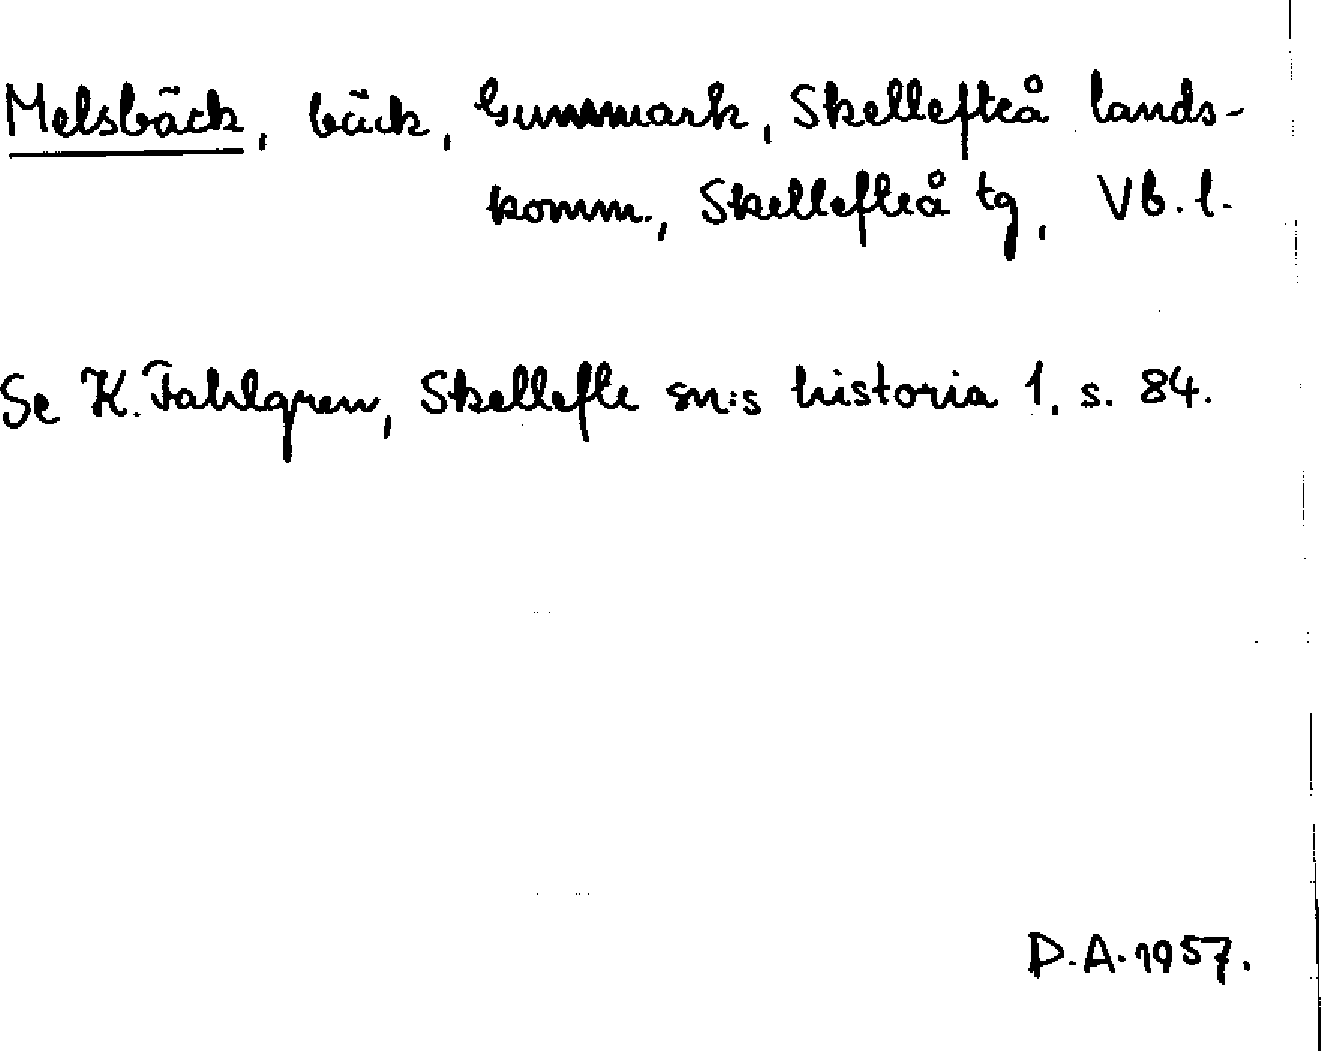 Melsbäck, bäck, Gummark, Skellefteå lands-
komm., Skellefteå tg, Vb. l.
Se K. Fahlgren, Skellefte sn:s historia 1, s. 84.
D.A. 1957.